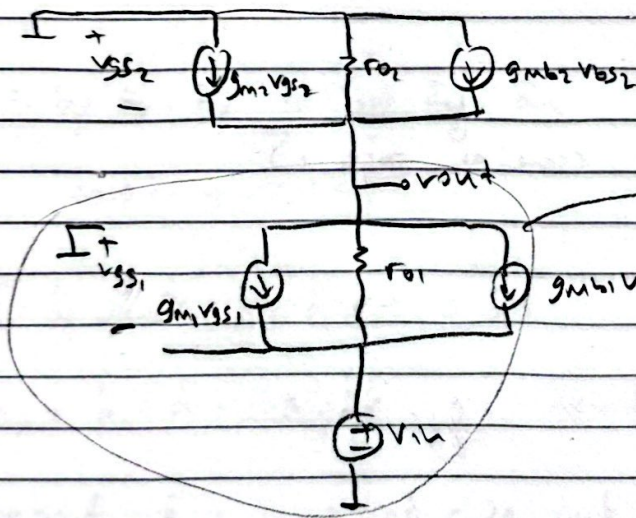 +
vgs2
−
gm2vgs2
ro2
gmb2vbs2
vout
+
vgs1
−
gm1vgs1
ro1
gmb1v
+
−
vin